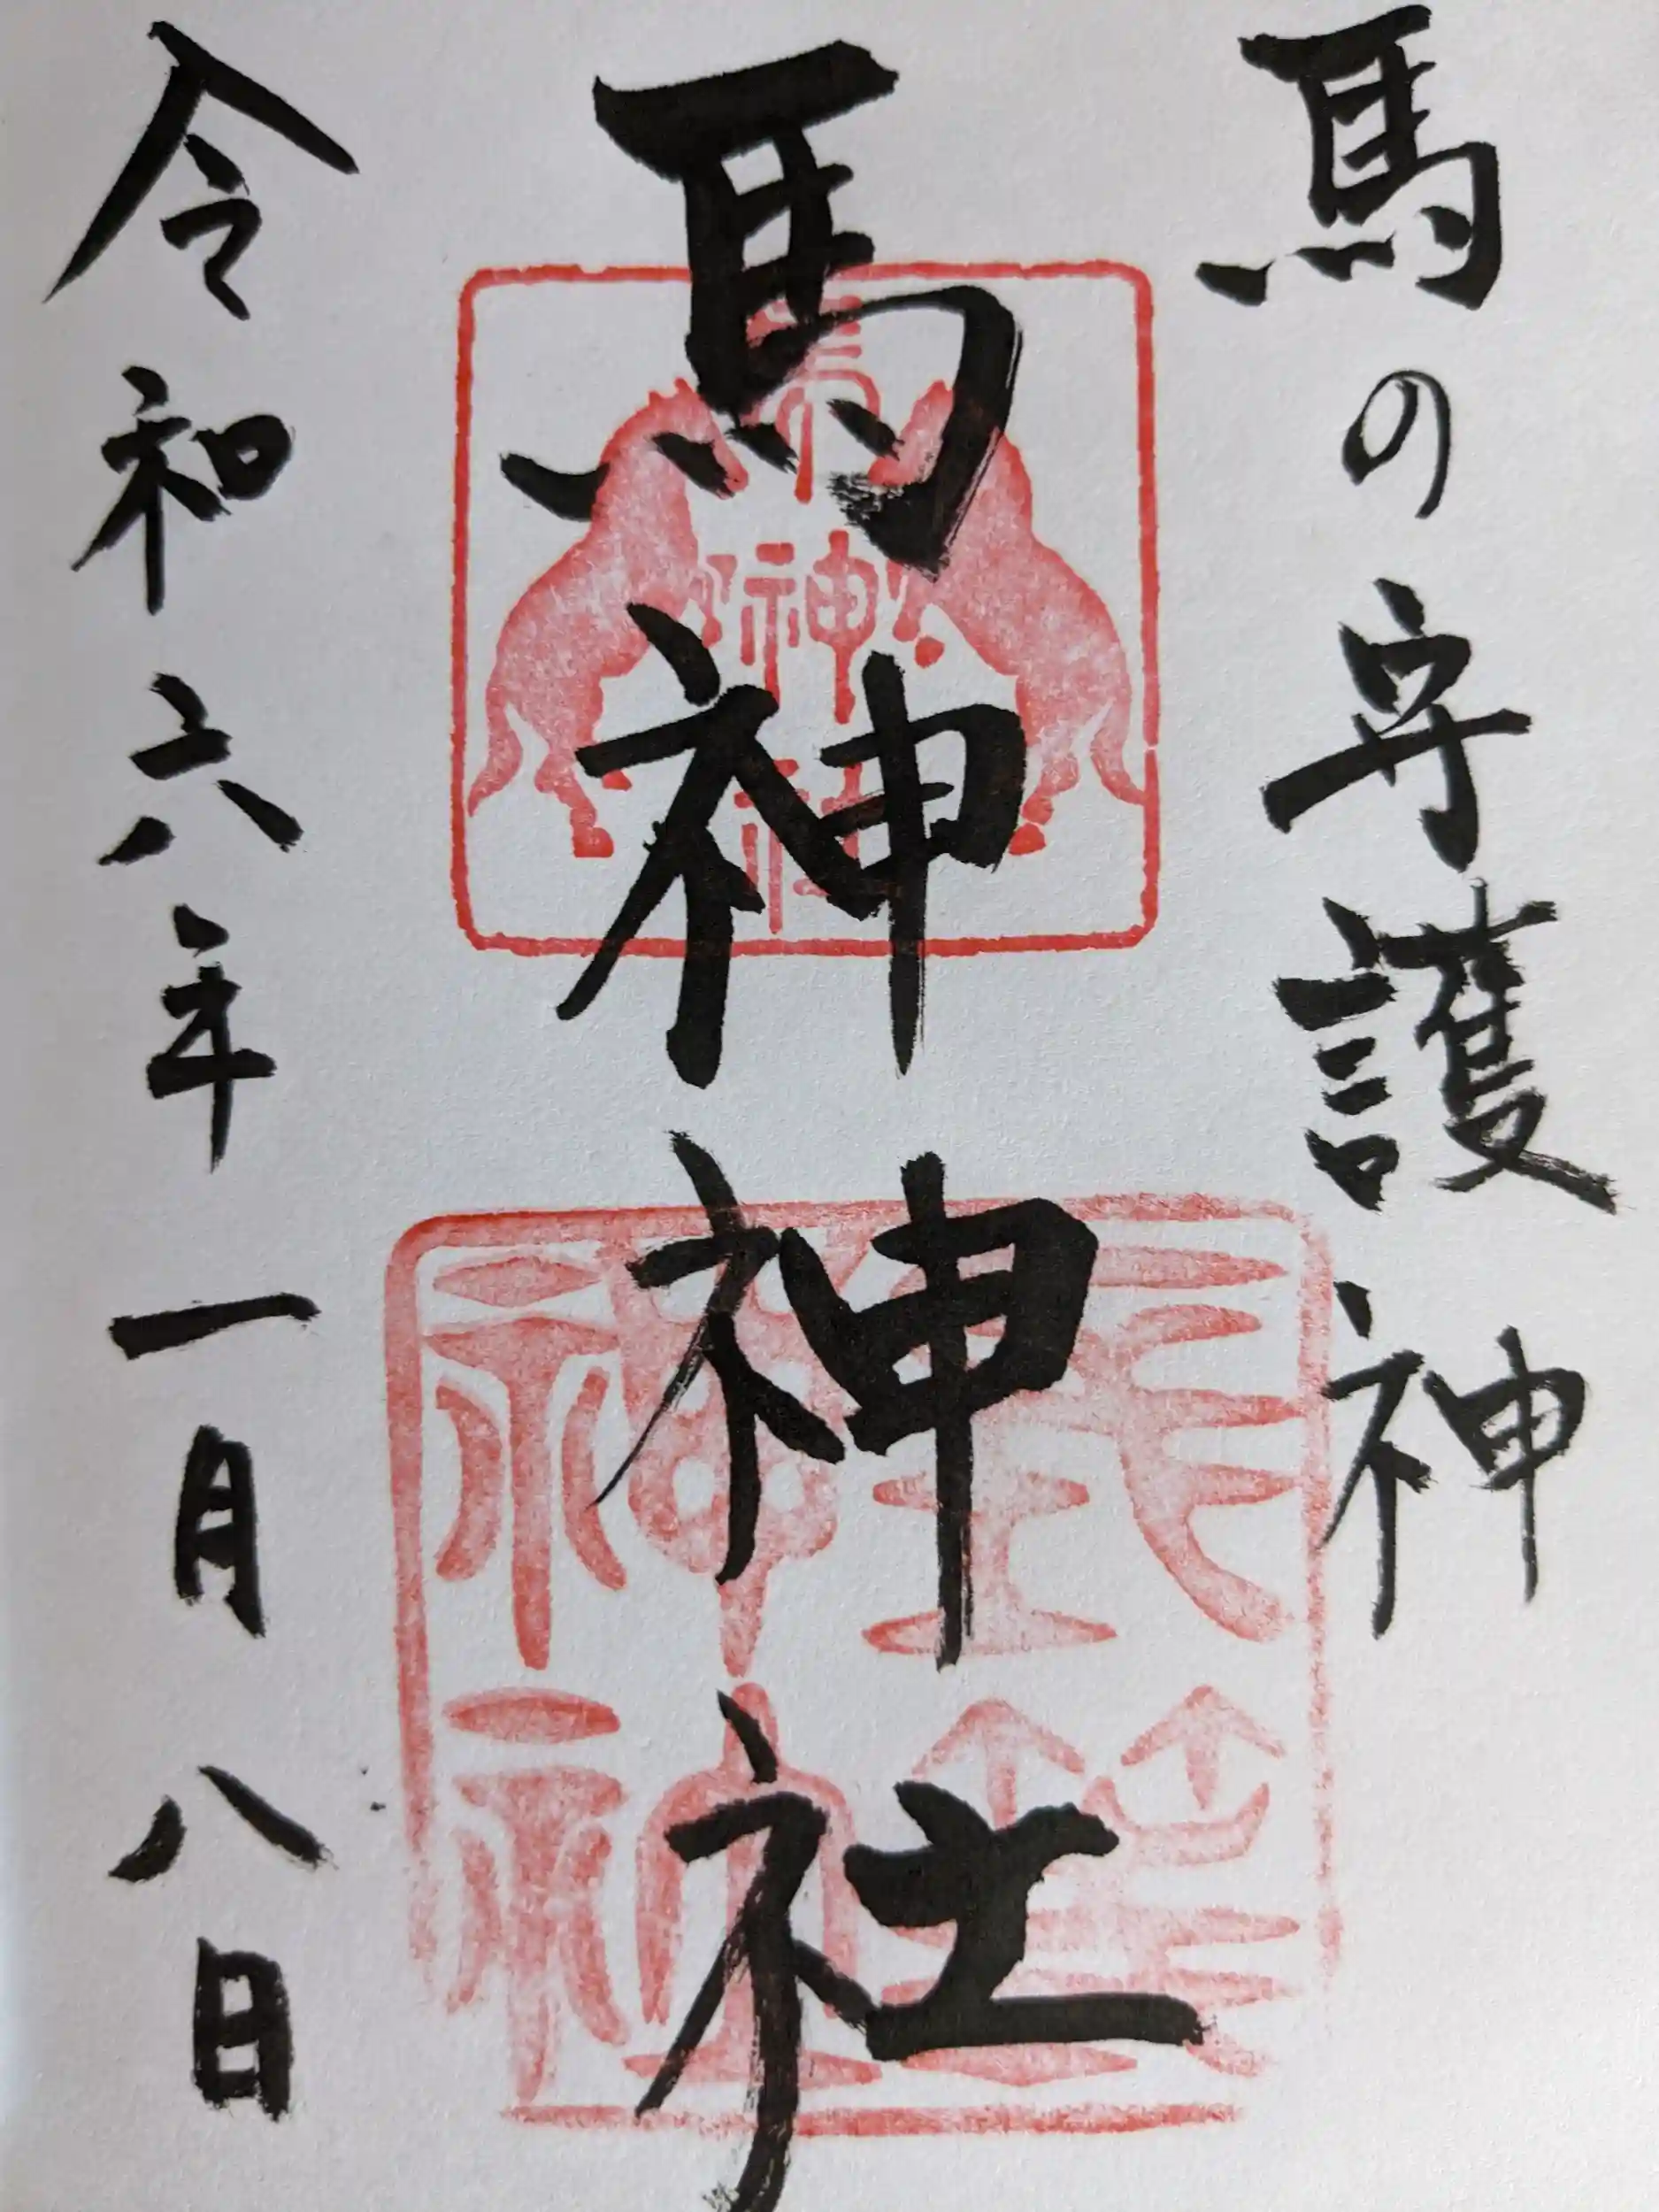 馬の守護神
馬神神社
令和六年一月八日
馬
神
社
神社